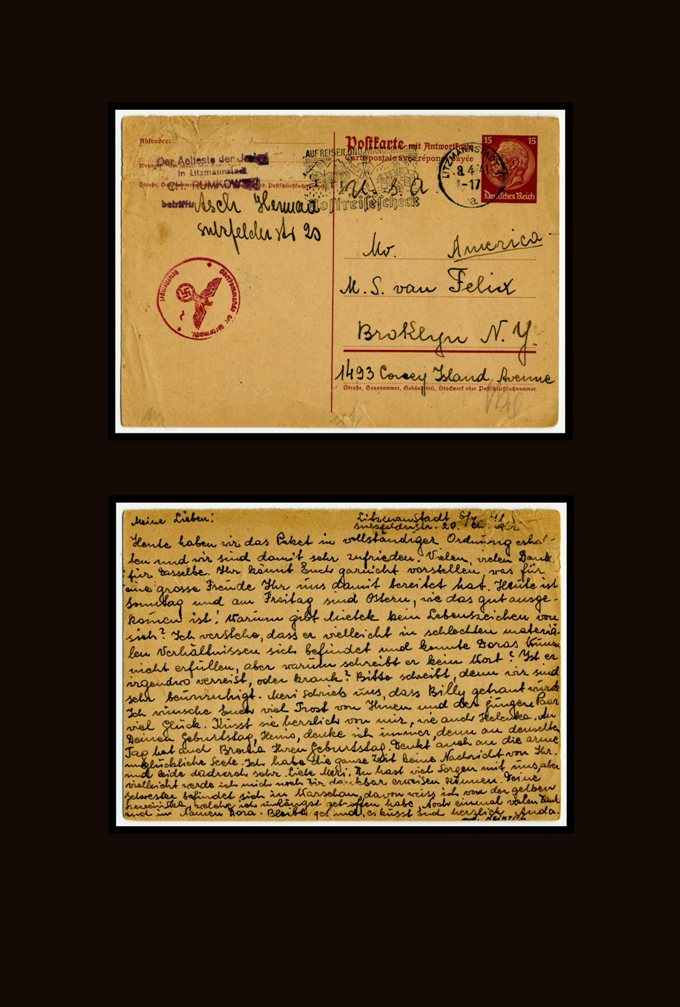 Absender:
Postkarte mit Antwortkarte
Carte postale avec réponse payée
15 15
Der Aelteste der Juden
in Litzmannstadt
CH. RUMKOWSKI
Asch Herman
Sulzfelder Str 20
AUF REISEN
Postreisescheck
U S A
LITZMANNSTADT
8.4.41
-17
a
Deutsches Reich
Oberkommando der Wehrmacht
Mr. America
M. S. van Felix
Broklyn N. Y.
1493 Coney Island Avenue
Straße, Hausnummer, Gebäudeteil, Stockwerk oder Postschließfachnummer
Meine Lieben! Litzmanstadt 6/ 41
20.
Heute haben wir das Paket in vollständiger Ordnung erhal-
ten und wir sind damit sehr zufrieden. Vielen, vielen Dank
für dasselbe. Ihr könnt Euch garnicht vorstellen was für
eine grosse Freude Ihr uns damit bereitet hat. Heute ist
Sonntag und am Freitag sind Ostern, wie das gut ausge-
komen ist! Warum gibt Mietek kein Lebenszeichen von
sich? Ich verstehe, dass er vielleicht in schlechten materiä-
len Verhältnissen sich befindet und konnte Doras
nicht erfüllen, aber warum schreibt er kein Wort? Ist er
irgendwo verreist, oder krank? Bitte schreibt, denn wir sind
sehr beunruhigt. Meri schrieb uns, dass Billy getraut wurde
Ich wünsche Euch viel Trost von Ihnen und der jüngere Paar
viel Glück. Küsst sie herzlich von mir, wie auch Helenka. An
Deinen Geburtstag, Henio, denke ich immer, denn an demselben
Tag hat auch Bronia Ihren Geburtstag. Denkt auch an die arme
unglückliche Seele. Ich habe die ganze Zeit keine Nachricht von Ihr
und leide dadurch sehr. Liebe Meri. Du hast viel Sorgen mit uns, aber
vielleicht werde ich mich noch Dir dankbar erweisen können. Deine
Schwester befindet sich in Warschau, davon weiss ich von der gelben
welche ich unlängst getroffen habe. Noch einmal vielen Dank
und im Namen Dora. Bleibt gesund, es küsst Euch herzlich Anda